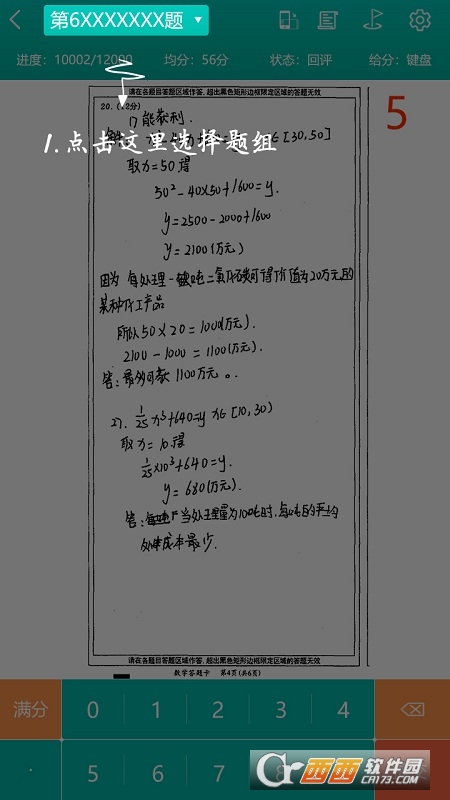 第6XXXXXXX题
进度：10002/12000 均分：56分 状态：回评 给分：键盘
请在各题目答题区域作答，超出黑色矩形边框限定区域的答题无效
20.(12分)
1.点击这里选择题组
5
1) 能获利.
∈[30,50]
取x=50得
50²-40×50+1600=y.
y=2500-2000+1600
y=2100(万元)
因为 每处理一吨二氧化碳可得价值为20万元的
某种化工产品
所以50×20=1000(万元).
2100-1000=1100(万元).
答: 最多可获1100万元。
27. 1/25 x³+640=y x∈[10,30)
取x=10.得
1/25×10³+640=y.
y=680(万元).
答: 当处理量为100吨时,每吨的平均
处理成本最少.
请在各题目答题区域作答，超出黑色矩形边框限定区域的答题无效
数学答题卡 第4页(共6页)
满分 0 1 2 3 4
· 5 6 7 8
西西软件园
CR173.COM